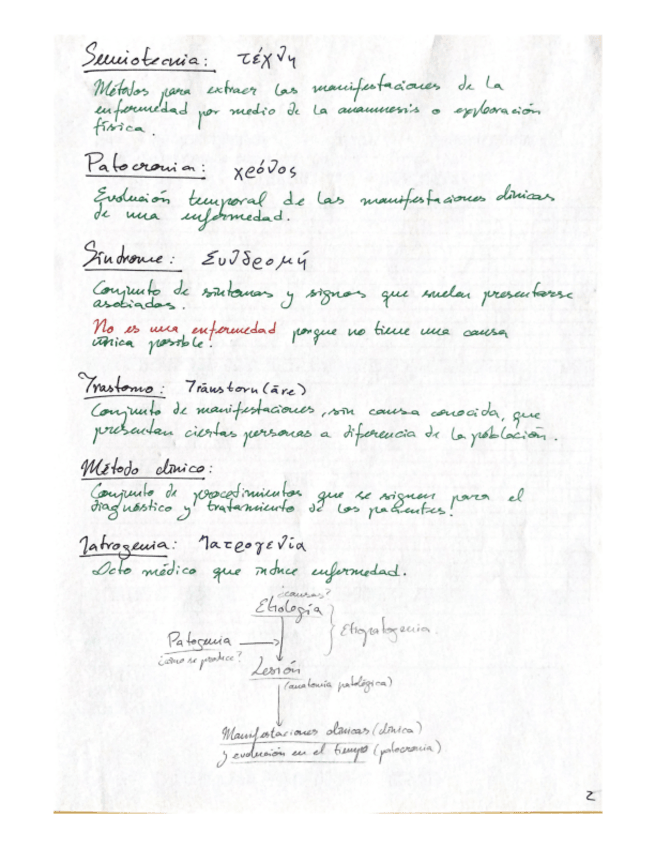 Semiotecnia: τέχνη
Métodos para extraer las manifestaciones de la
enfermedad por medio de la anamnesis o exploración
física.
Patocronia: χρόνος
Evolución temporal de las manifestaciones clínicas
de una enfermedad.
Síndrome: Συνδρομή
Conjunto de síntomas y signos que suelen presentarse
asociados.
No es una enfermedad porque no tiene una causa
única posible!
Trastorno: Trānstorn(āre)
Conjunto de manifestaciones, sin causa conocida, que
presentan ciertas personas a diferencia de la población.
Método clínico:
Conjunto de procedimientos que se siguen para el
diagnóstico y tratamiento de los pacientes!
Iatrogenia: Ιατρογενία
Acto médico que induce enfermedad.
¿causas?
Etiología
Etiopatogenia.
Patogenia
¿cómo se produce?
Lesión
(anatomía patológica)
Manifestaciones clínicas (clínica)
y evolución en el tiempo (patocronia)
2